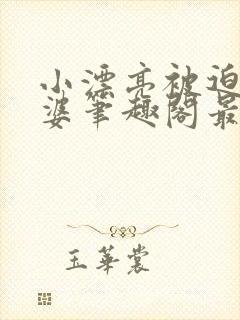 小漂亮被迫
婆笔趣阁最
玉华裳